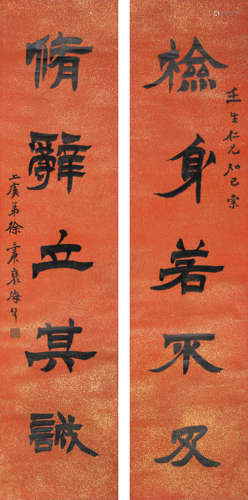 壬生仁兄知己
檢身若不及
脩辭立其誠
上虞弟徐